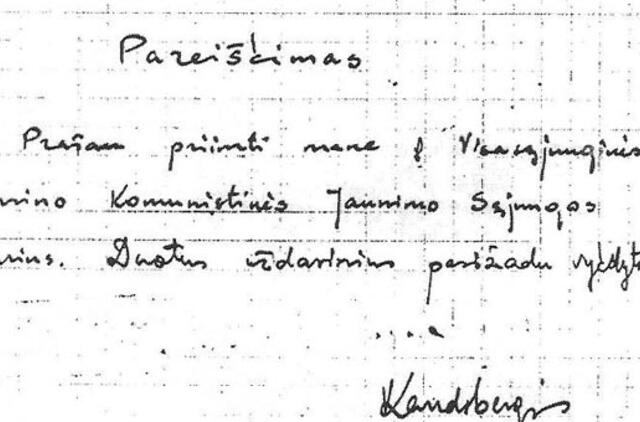 Pareiškimas
Prašau priimti mane į Visasąjunginės
nino Komunistinės Jaunimo Sąjungos
rius. Duotus uždavinius pasižadu vykdyti
Landsbergis